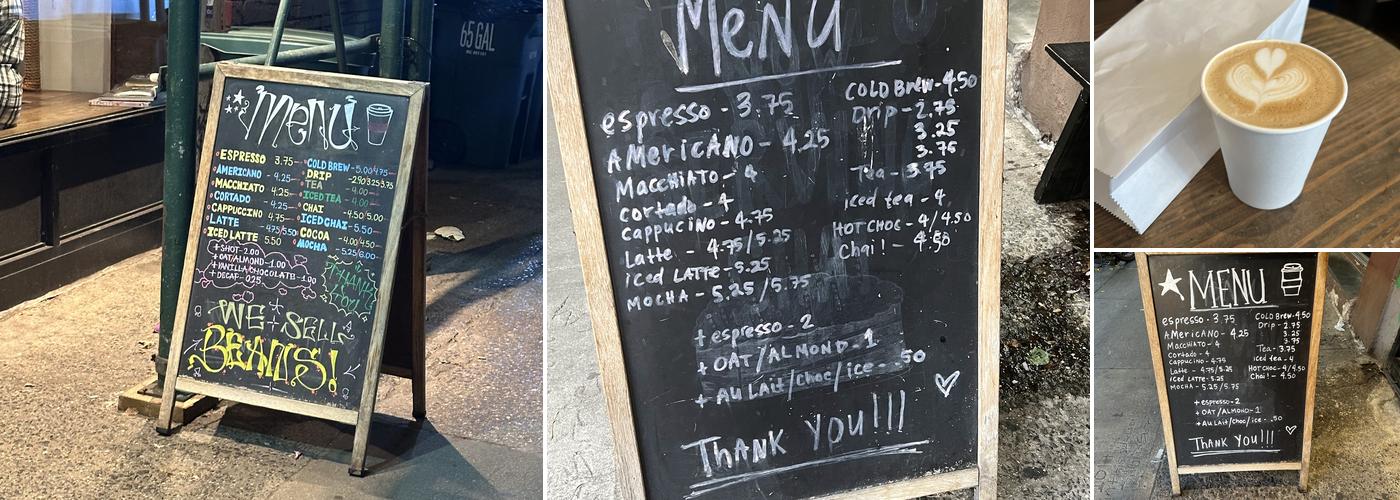 65 GAL
MENU
ESPRESSO 3.75
AMERICANO - 4.25
MACCHIATO 4.25
CORTADO - 4.25
CAPPUCCINO 4.75
LATTE - 4.75/5.50
ICED LATTE 5.50
COLD BREW - 5.00
DRIP
TEA - 4.00
ICED TEA - 4.00
CHAI - 4.50/5.00
ICED CHAI - 5.50
COCOA - 4.00/4.50
MOCHA - 5.25/6.00
+ SHOT - 2.00
+ OAT/ALMOND - 1.00
+ VANILLA/CHOCOLATE - 1.00
+ DECAF - 0.25
THANK
YOU!
WE SELL
BEANS!
MeNU
espresso - 3.75
AMericANO - 4.25
MaccHiATO - 4
cortado - 4
cappucino - 4.75
Latte - 4.75/5.25
iced LATTE - 5.25
MOCHA - 5.25/5.75
COLD BREW - 4.50
Drip - 2.75
3.25
3.75
Tea - 3.75
iced tea - 4
HOT CHOC - 4/4.50
Chai! - 4.50
+ espresso - 2
+ OAT/ALMOND - 1
+ AU LAit/choc/ice - .50
THANK YOU!!!
MENU
espresso - 3.75
AMericANO - 4.25
MaccHiATO - 4
Cortado - 4
cappucino - 4.75
Latte - 4.75/5.25
iced LATTE - 5.25
MOCHA - 5.25/5.75
COLD BREW - 4.50
Drip - 2.75
3.25
3.75
Tea - 3.75
iced tea - 4
HOT CHOC - 4/4.50
Chai! - 4.50
+ espresso - 2
+ OAT/ALMOND - 1
+ AU LAit/choc/ice - .50
THANK YOU!!!